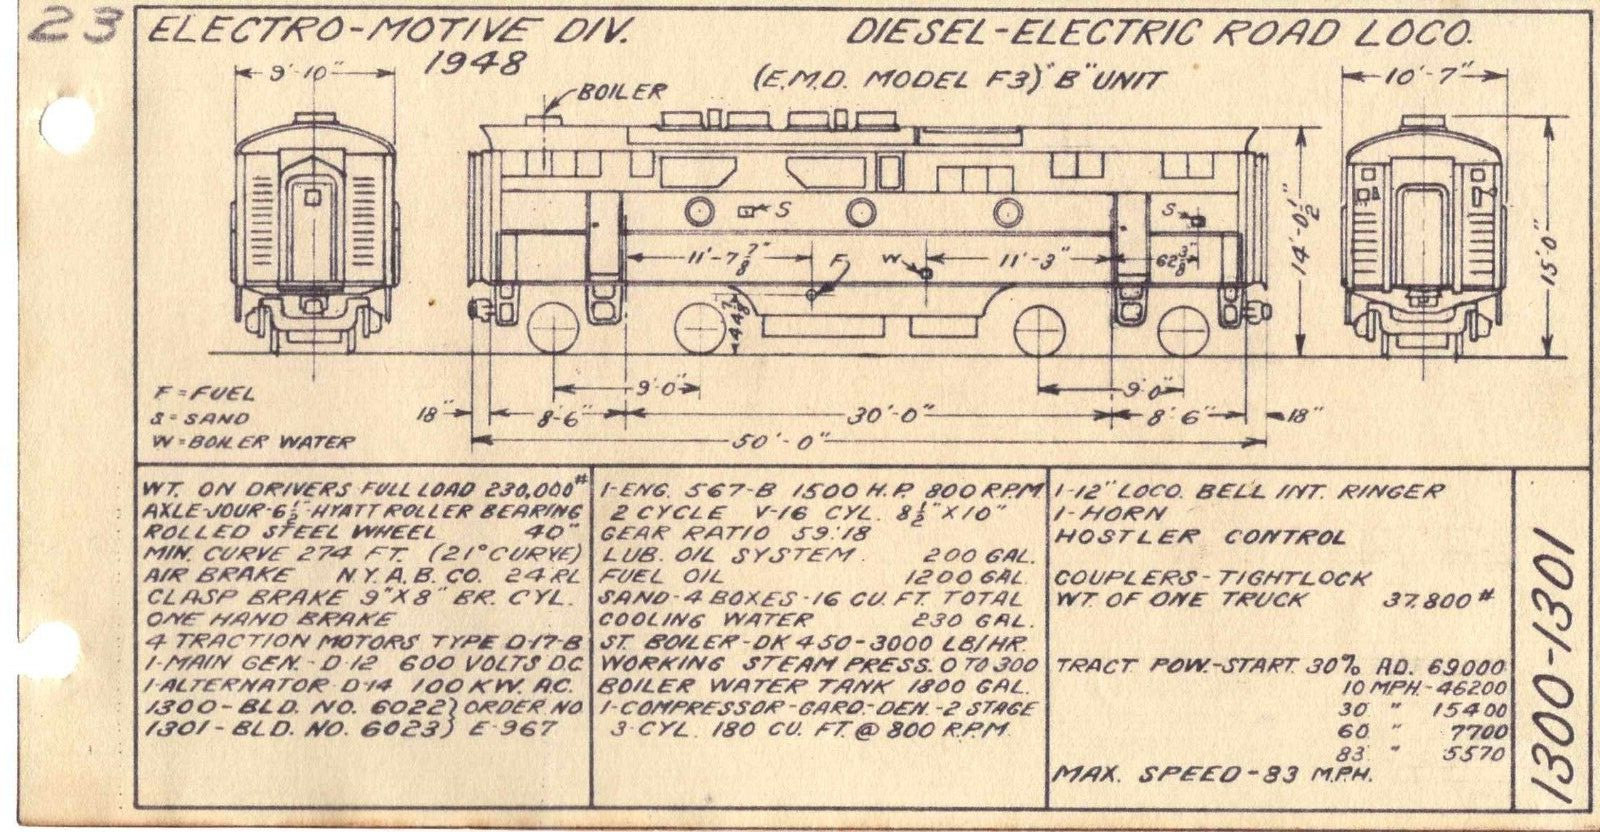 23
ELECTRO-MOTIVE DIV.
1948
DIESEL-ELECTRIC ROAD LOCO.
(E.M.D. MODEL F3) "B" UNIT
9'-10"
BOILER
10'-7"
S
S
11'-7 7/8"
F
W
11'-3"
62 3/8"
14'-0 1/2"
15'-0"
44 7/8"
9'-0"
9'-0"
F=FUEL
S=SAND
W=BOILER WATER
18"
8'-6"
30'-0"
8'-6"
18"
50'-0"
WT. ON DRIVERS-FULL LOAD 230,000#
AXLE-JOUR-6 1/2"-HYATT ROLLER BEARING
ROLLED STEEL WHEEL 40"
MIN. CURVE 274 FT. (21° CURVE)
AIR BRAKE N.Y.A.B. CO. 24 RL
CLASP BRAKE 9"X8" BR. CYL.
ONE HAND BRAKE
4 TRACTION MOTORS TYPE D-17-B
1-MAIN GEN.-D-12 600 VOLTS D.C.
1-ALTERNATOR D-14 100 KW. A.C.
1300-BLD. NO. 6022} ORDER NO
1301-BLD. NO. 6023} E-967
1-ENG. 567-B 1500 H.P. 800 R.P.M
2 CYCLE V-16 CYL. 8 1/2" X 10"
GEAR RATIO 59:18
LUB. OIL SYSTEM 200 GAL.
FUEL OIL 1200 GAL.
SAND-4 BOXES-16 CU. FT. TOTAL
COOLING WATER 230 GAL.
ST. BOILER-DK 450-3000 LB/HR.
WORKING STEAM PRESS. 0 TO 300
BOILER WATER TANK 1800 GAL.
1-COMPRESSOR-GARD.-DEN.-2 STAGE
3-CYL. 180 CU. FT. @ 800 R.P.M.
1-12" LOCO. BELL INT. RINGER
1-HORN
HOSTLER CONTROL
COUPLERS-TIGHTLOCK
WT. OF ONE TRUCK 37,800#
TRACT POW.-START. 30% AD. 69000
10 MPH-46200
30 " 15400
60 " 7700
83 " 5570
MAX. SPEED-83 M.P.H.
1300-1301